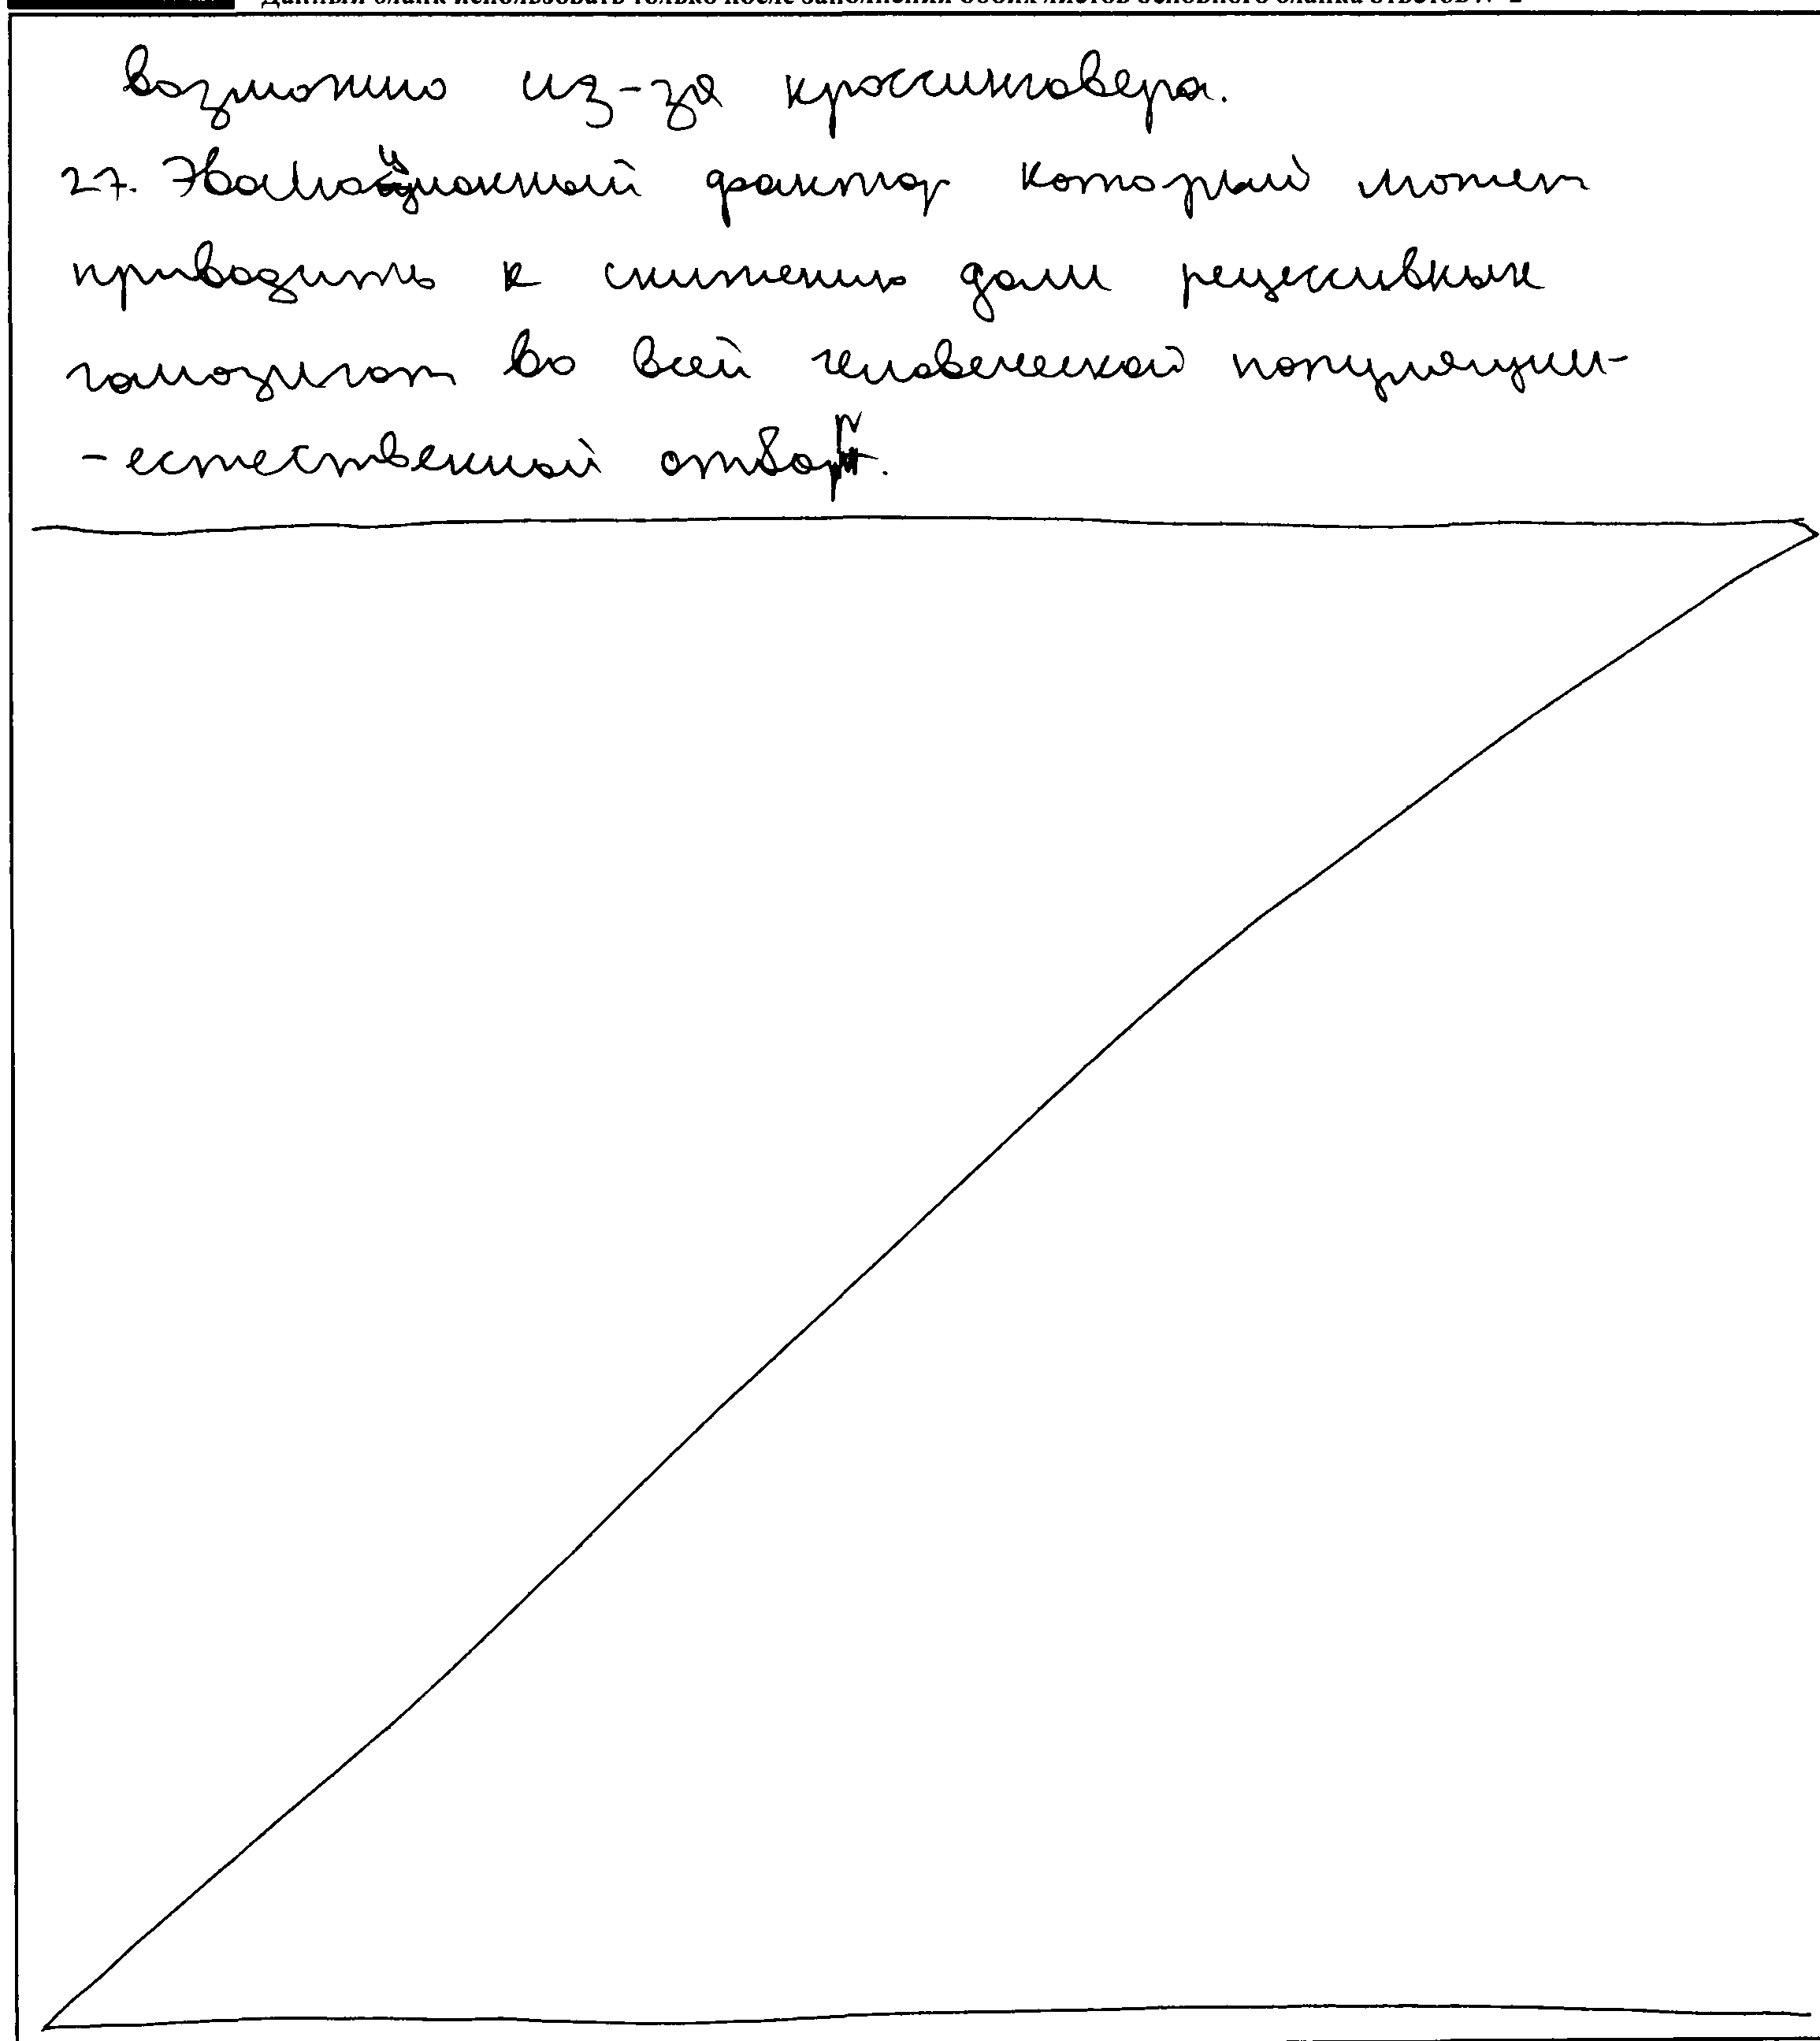 Данный бланк использовать только после заполнения обоих листов основного бланка ответов № 2
возможно из-за кроссинговера.
27. Эволюционный фактор который может
приводить к снижению доли рецессивных
гомозигот во всей человеческой популяции-
- естественный отбор.